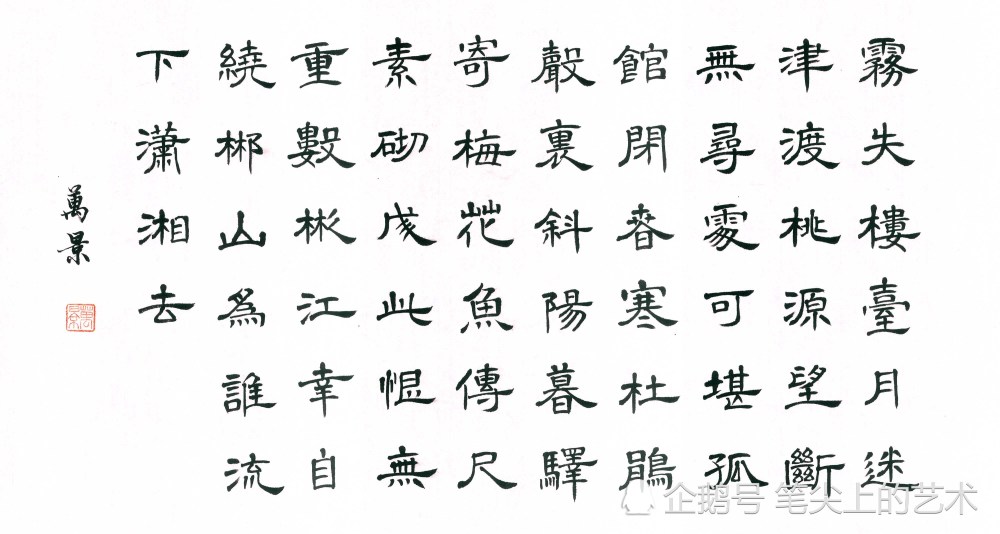 霧失樓臺月迷
津渡桃源望斷
無尋處可堪孤
館閉春寒杜鵑
聲裏斜陽暮驛
寄梅花魚傳尺
素砌成此恨無
重數彬江幸自
繞郴山爲誰流
下瀟湘去
萬景
企鹅号 笔尖上的艺术